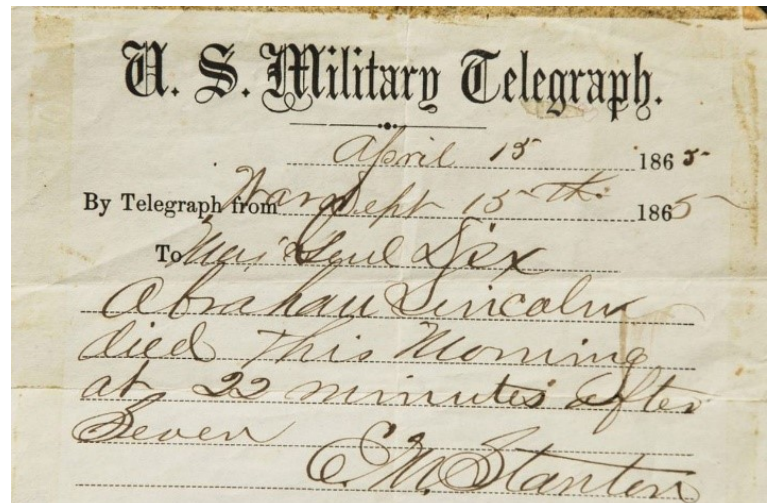 U. S. Military Telegraph.
April 15 1865
By Telegraph from War Dept 15th 1865
To Maj Genl Dix
Abraham Lincoln
died this Morning
at 22 minutes after
Seven
E. M. Stanton